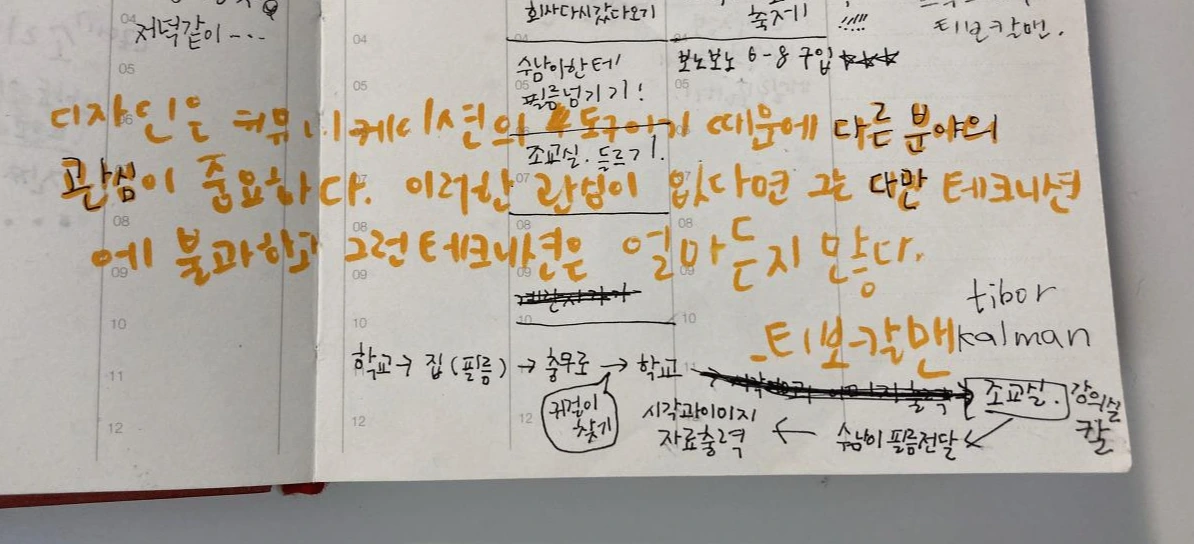 저녁같이 - - -
회사다시갔다오기
축제!
!!!!!
티보칼맨.
수남이한테
필름넘기기!
보노보노 6-8 구입 ☆☆☆
디자인은 커뮤니케이션의 도구이기 때문에 다른 분야의
관심이 중요하다. 이러한 관심이 없다면 그는 다만 테크니션
에 불과하고 그런 테크니션은 얼마든지 많다.
조교실. 들르기.
- 티보 칼맨
tibor
kalman
학교 → 집(필름) → 충무로 → 학교
조교실.
강의실
칼
귀걸이
찾기
시각과이미지
자료출력
← 수남이 필름전달
04
05
06
07
08
09
10
11
12
04
05
07
08
09
10
11
12
05
07
09
10
12
05
08
09
10